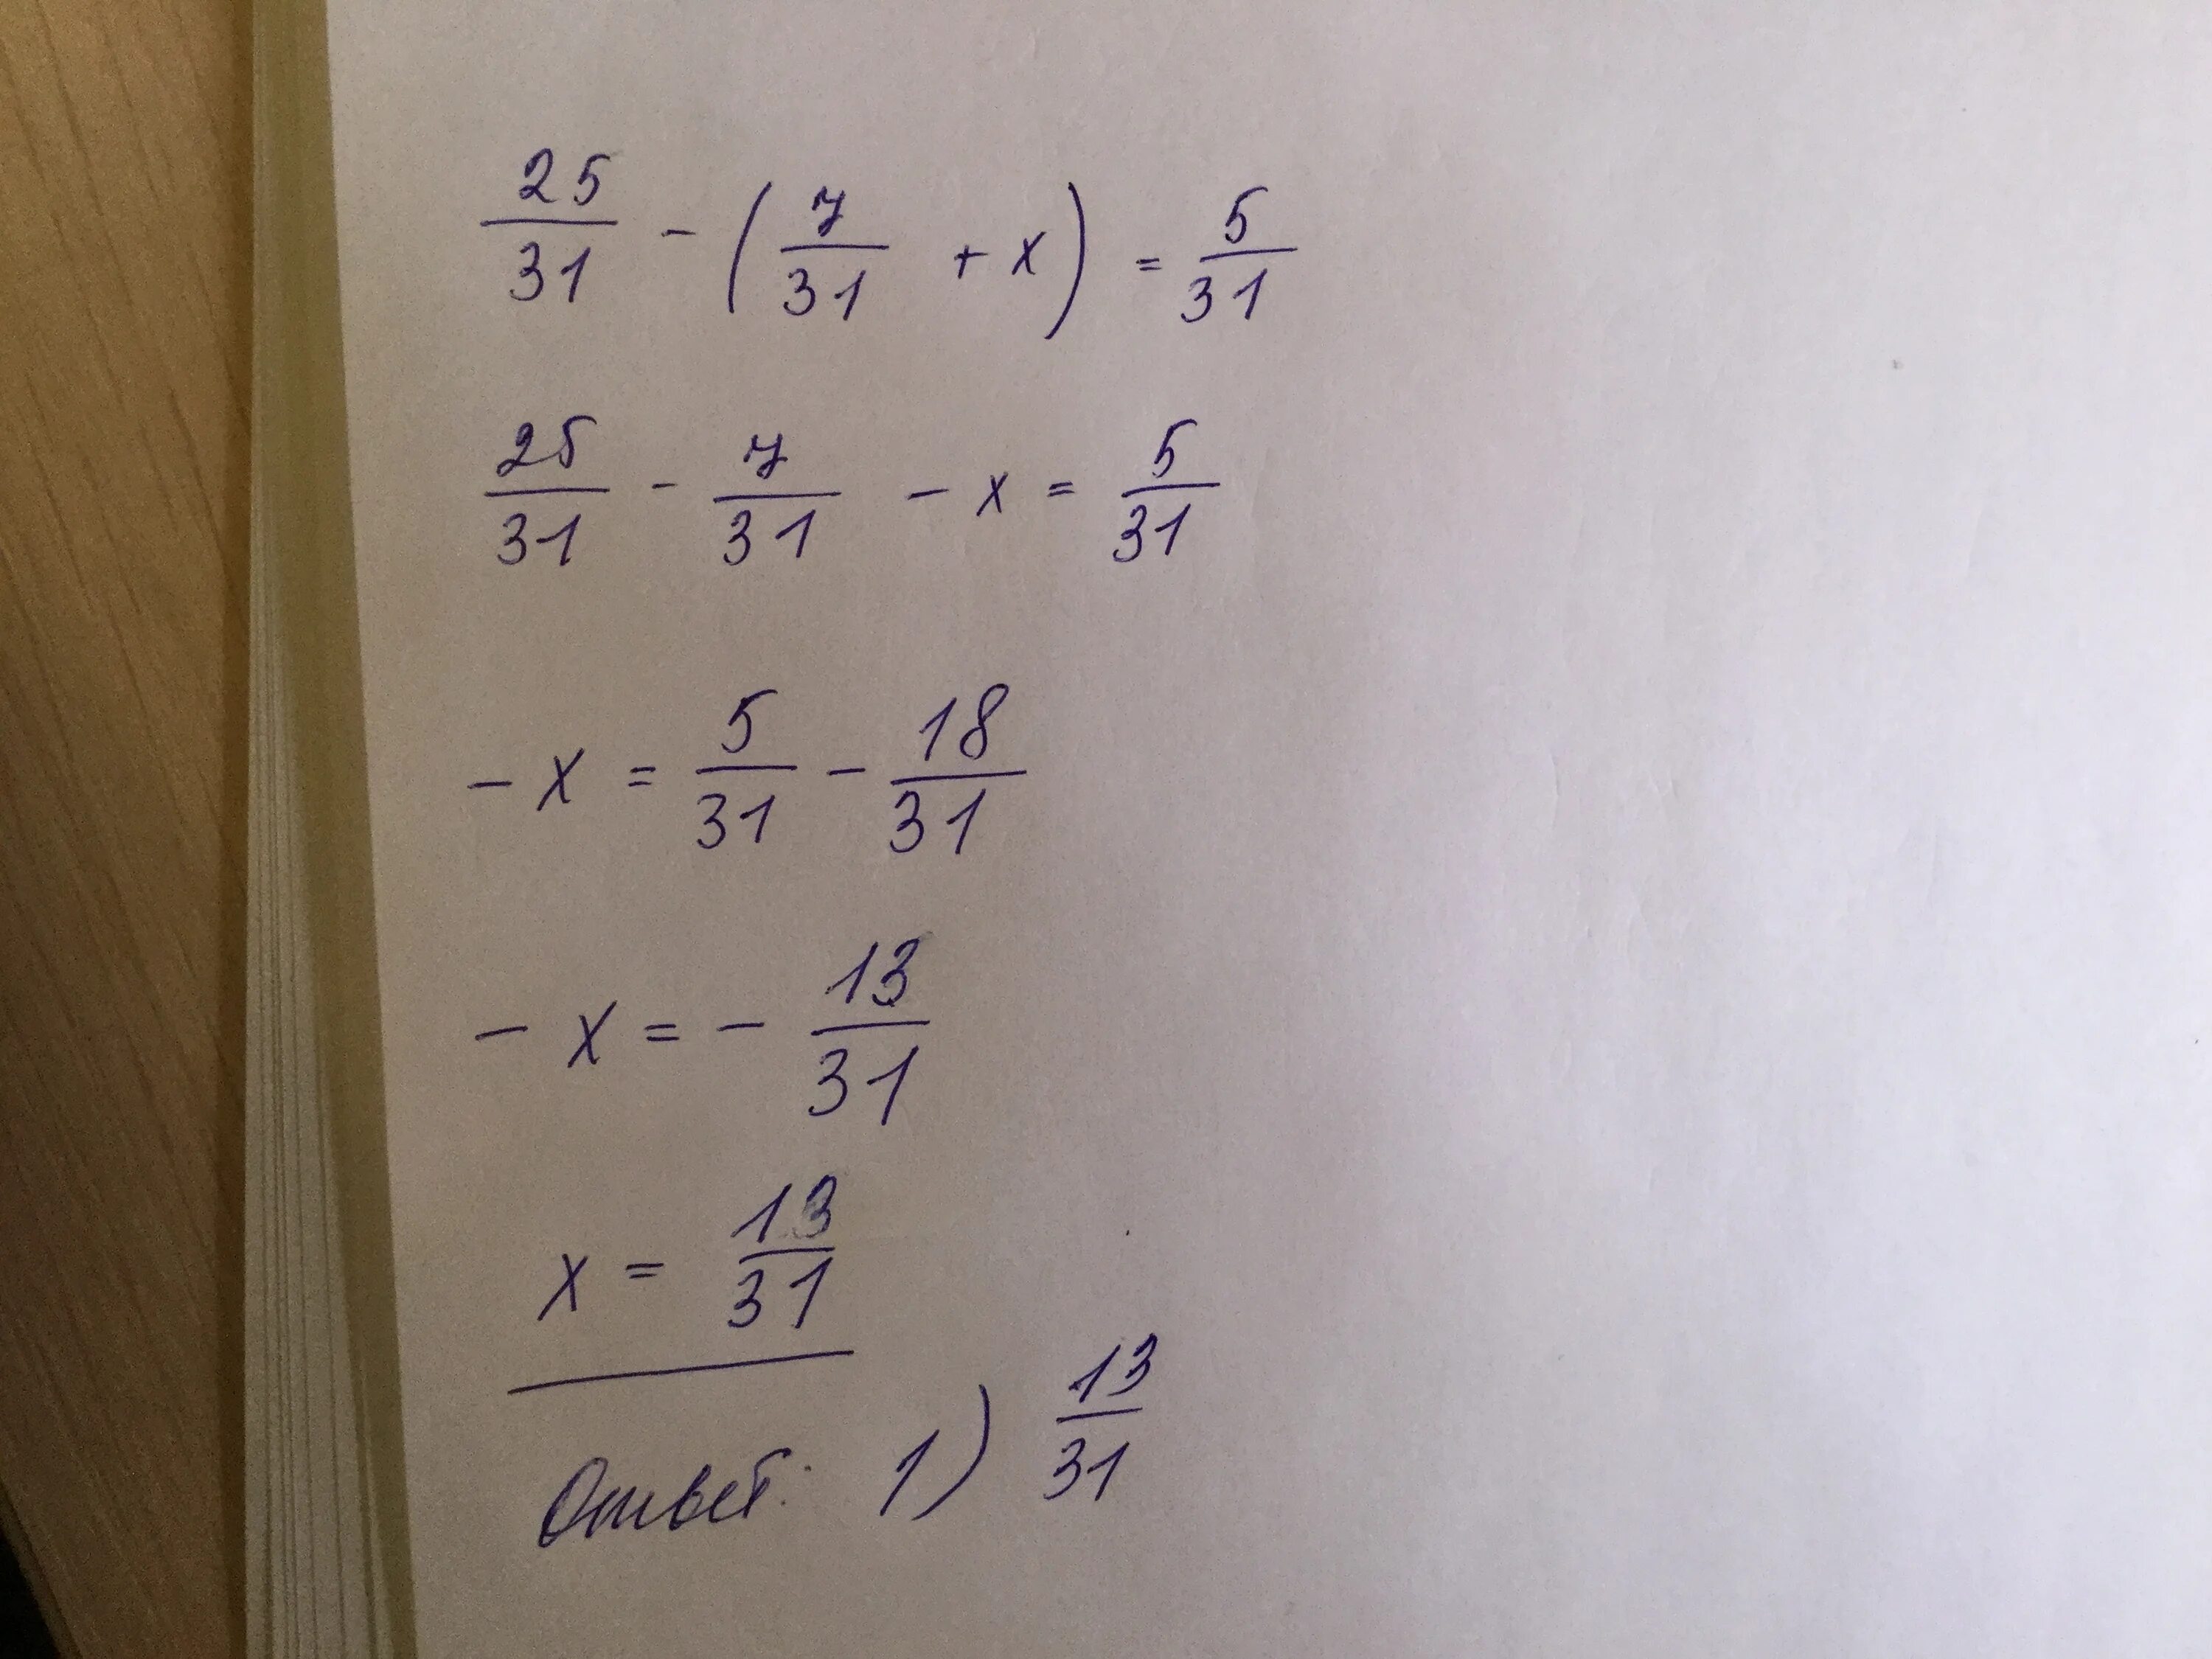 25/31 - (7/31 + x) = 5/31
25/31 - 7/31 - x = 5/31
- x = 5/31 - 18/31
- x = - 13/31
x = 13/31
Ответ: 1) 13/31